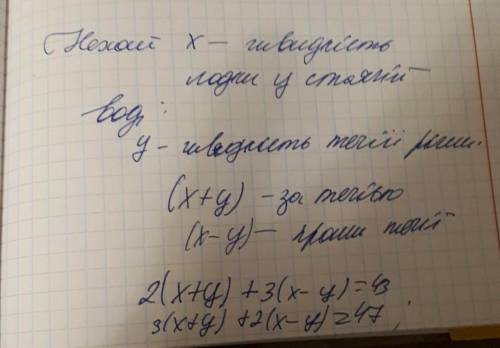 Нехай x – швидкість
лодки у стоячій
воді
y – швидкість течії річки.
(x+y) – за течією
(x-y) – проти течії
2(x+y) + 3(x-y) = 43
3(x+y) + 2(x-y) = 47;